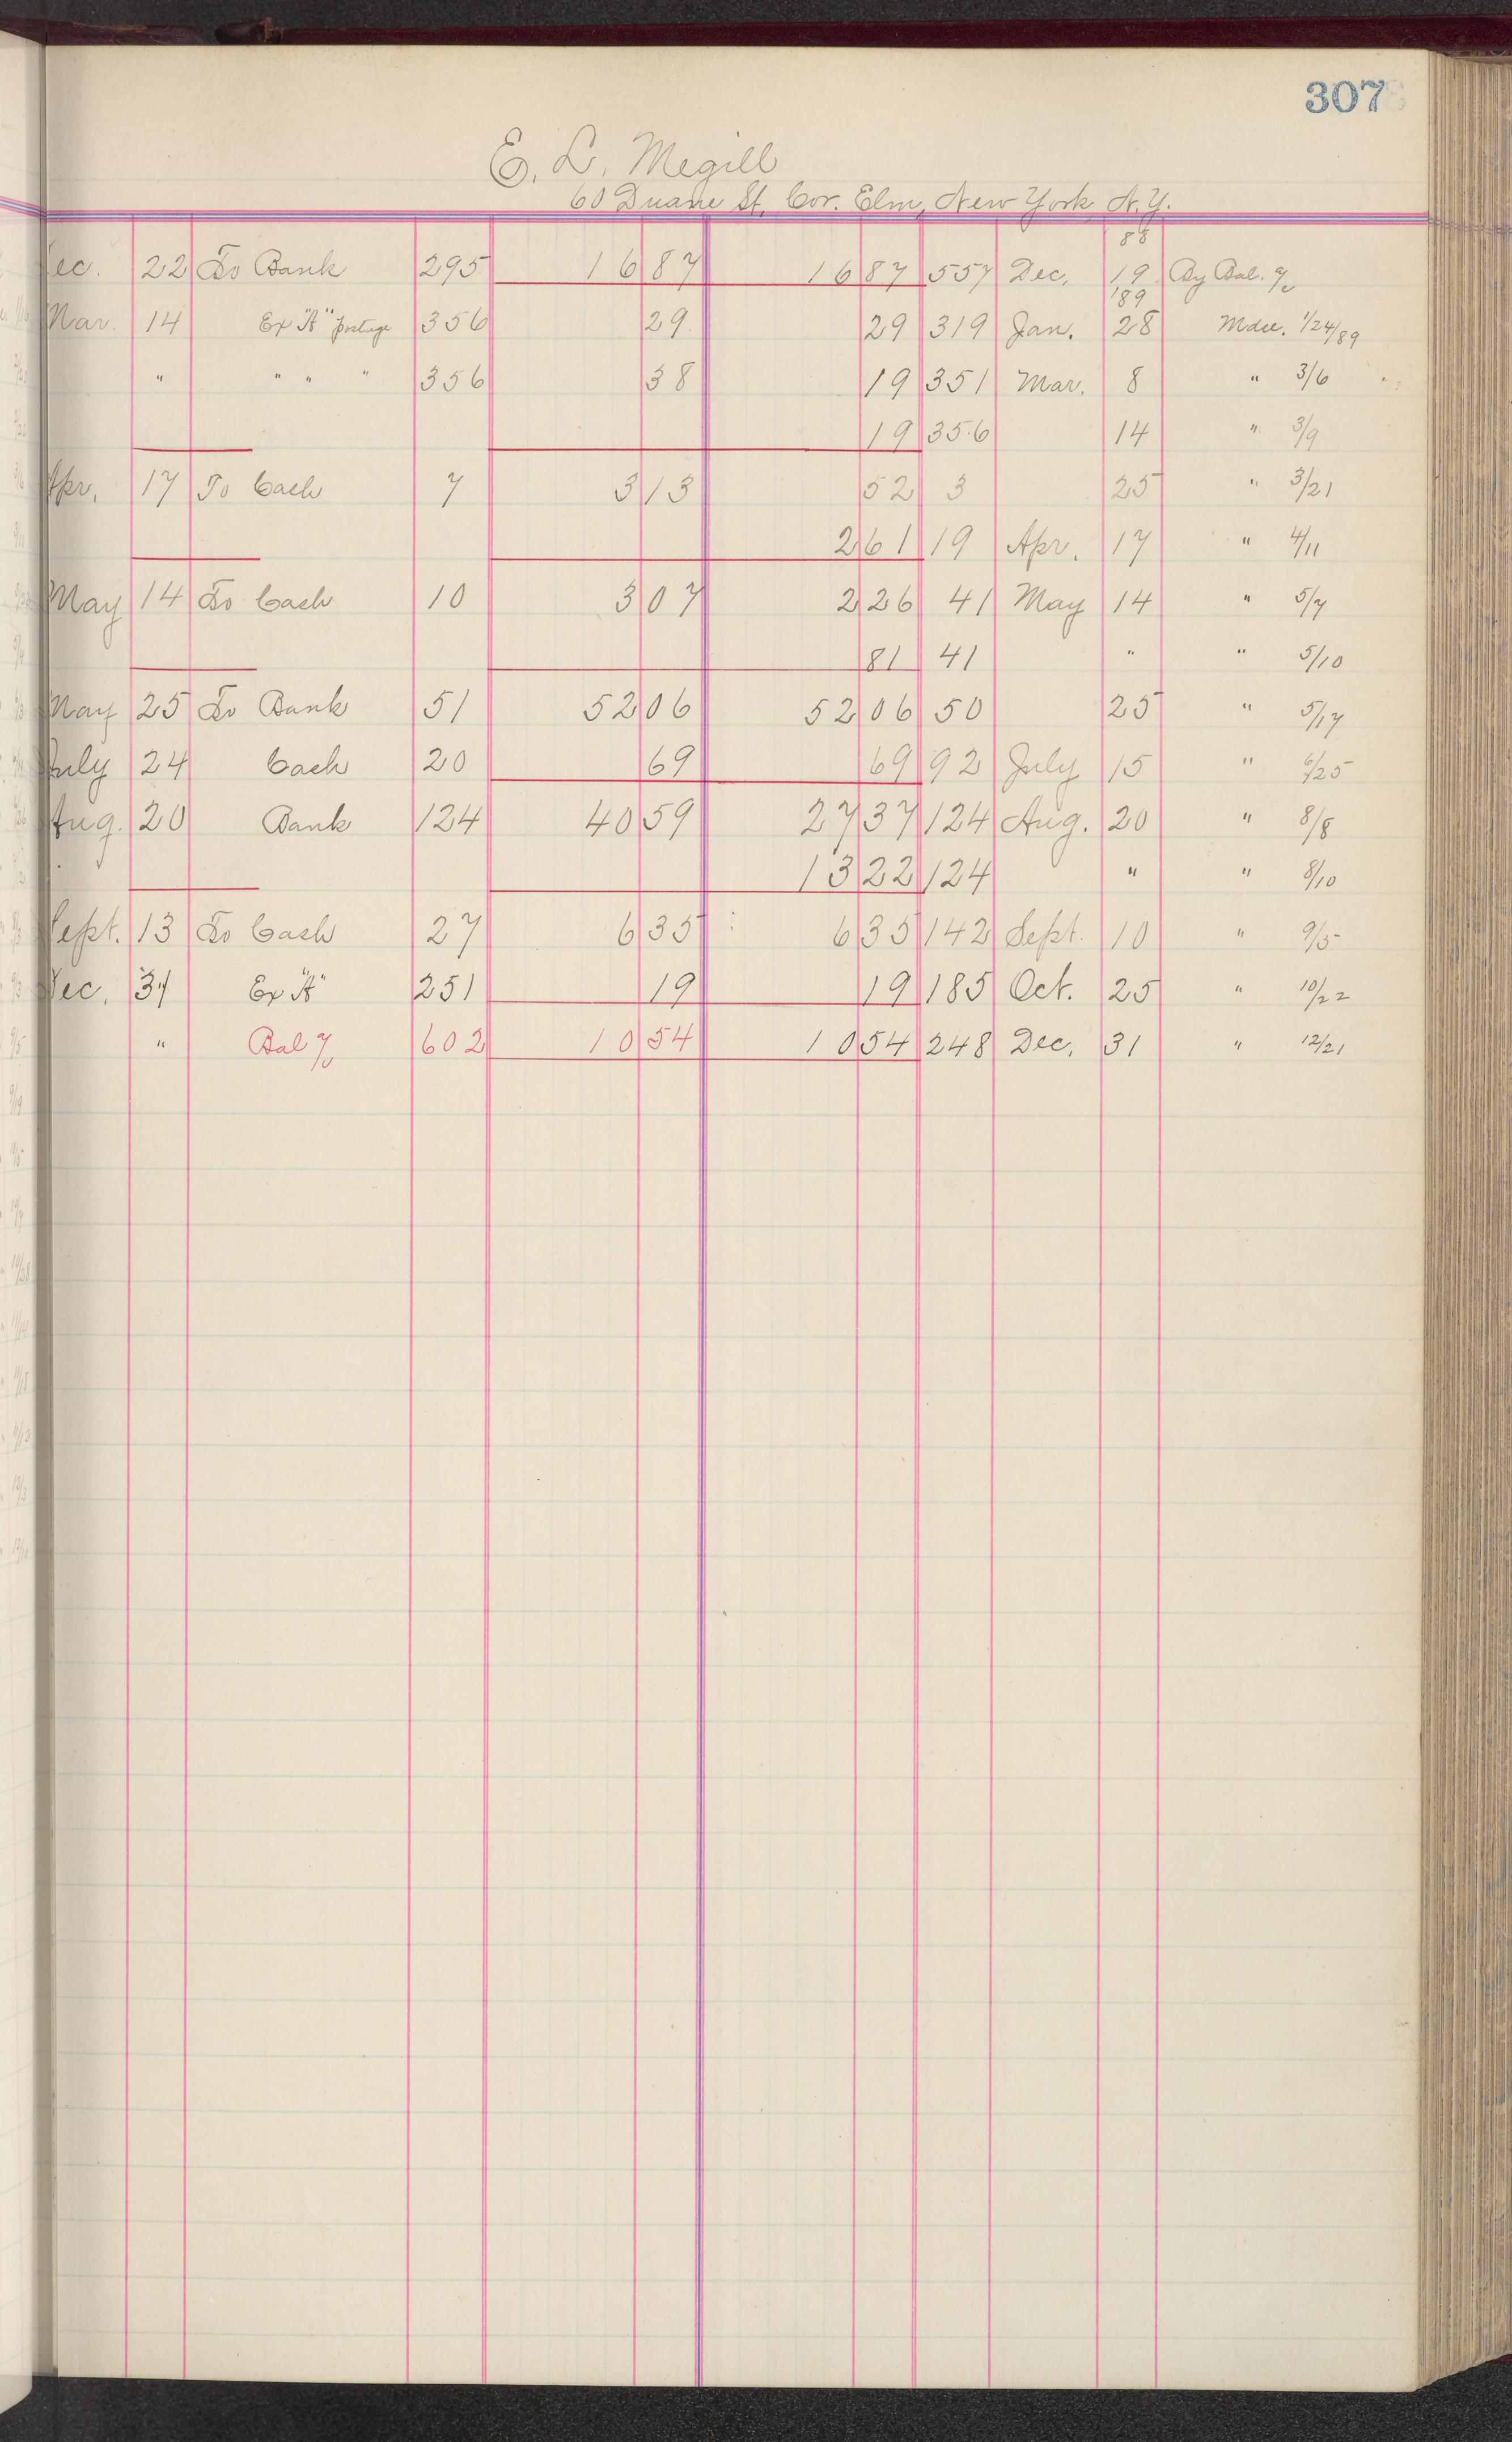 307
E. L. Megill
60 Duane St. Cor. Elm, New York N.Y.
88
ec. 22 To Bank 295 16 87 16 87 557 Dec. 19 By Bal. %
'89
Mar. 14 Ex "A" postage 356 29 29 319 Jan. 28 Mdse. 1/24/89
" " " " 356 38 19 351 Mar. 8 " 3/6
19 356 14 " 3/9
Apr. 17 To Cash 7 3 13 52 3 25 " 3/21
2 61 19 Apr. 17 " 4/11
May 14 To Cash 10 3 07 2 26 41 May 14 " 5/7
81 41 " " 5/10
May 25 To Bank 51 52 06 52 06 50 25 " 5/17
July 24 Cash 20 69 69 92 July 15 " 6/25
Aug. 20 Bank 124 40 59 27 37 124 Aug. 20 " 8/8
13 22 124 " " 8/10
Sept. 13 To Cash 27 6 35 6 35 142 Sept. 10 " 9/5
Dec. 31 Ex "A" 251 19 19 185 Oct. 25 " 10/22
" Bal % 602 10 54 10 54 248 Dec. 31 " 12/21